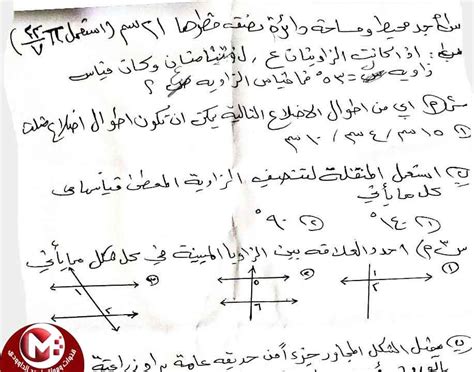 س١/ جد محيط ومساحة دائرة نصف قطرها ٢١ سم (استعمل π = ٢٢/٧)
ب: اذا كانت الزاويتان ع , ل متتامتان وكان قياس
زاوية = ٥٣° فما قياس الزاوية ؟
أي من اطوال الاضلاع التالية يمكن ان تكون اطوال اضلاع مثلث
١٥ سم / ٤ سم / ١٠ سم
ب) استعمل المنقلة لتنصيف الزاوية المعطى قياسها في
كل ما يأتي
١) ١٤٠° ٢) ٩٠°
س٣) ٢) حدد العلاقة بين الزوايا المبينة في كل شكل ما يأتي
١ ٢
٥ ٦
١ ٢
ب) يمثل الشكل المجاور جزءاً من حديقة عامة يراد زراعتها